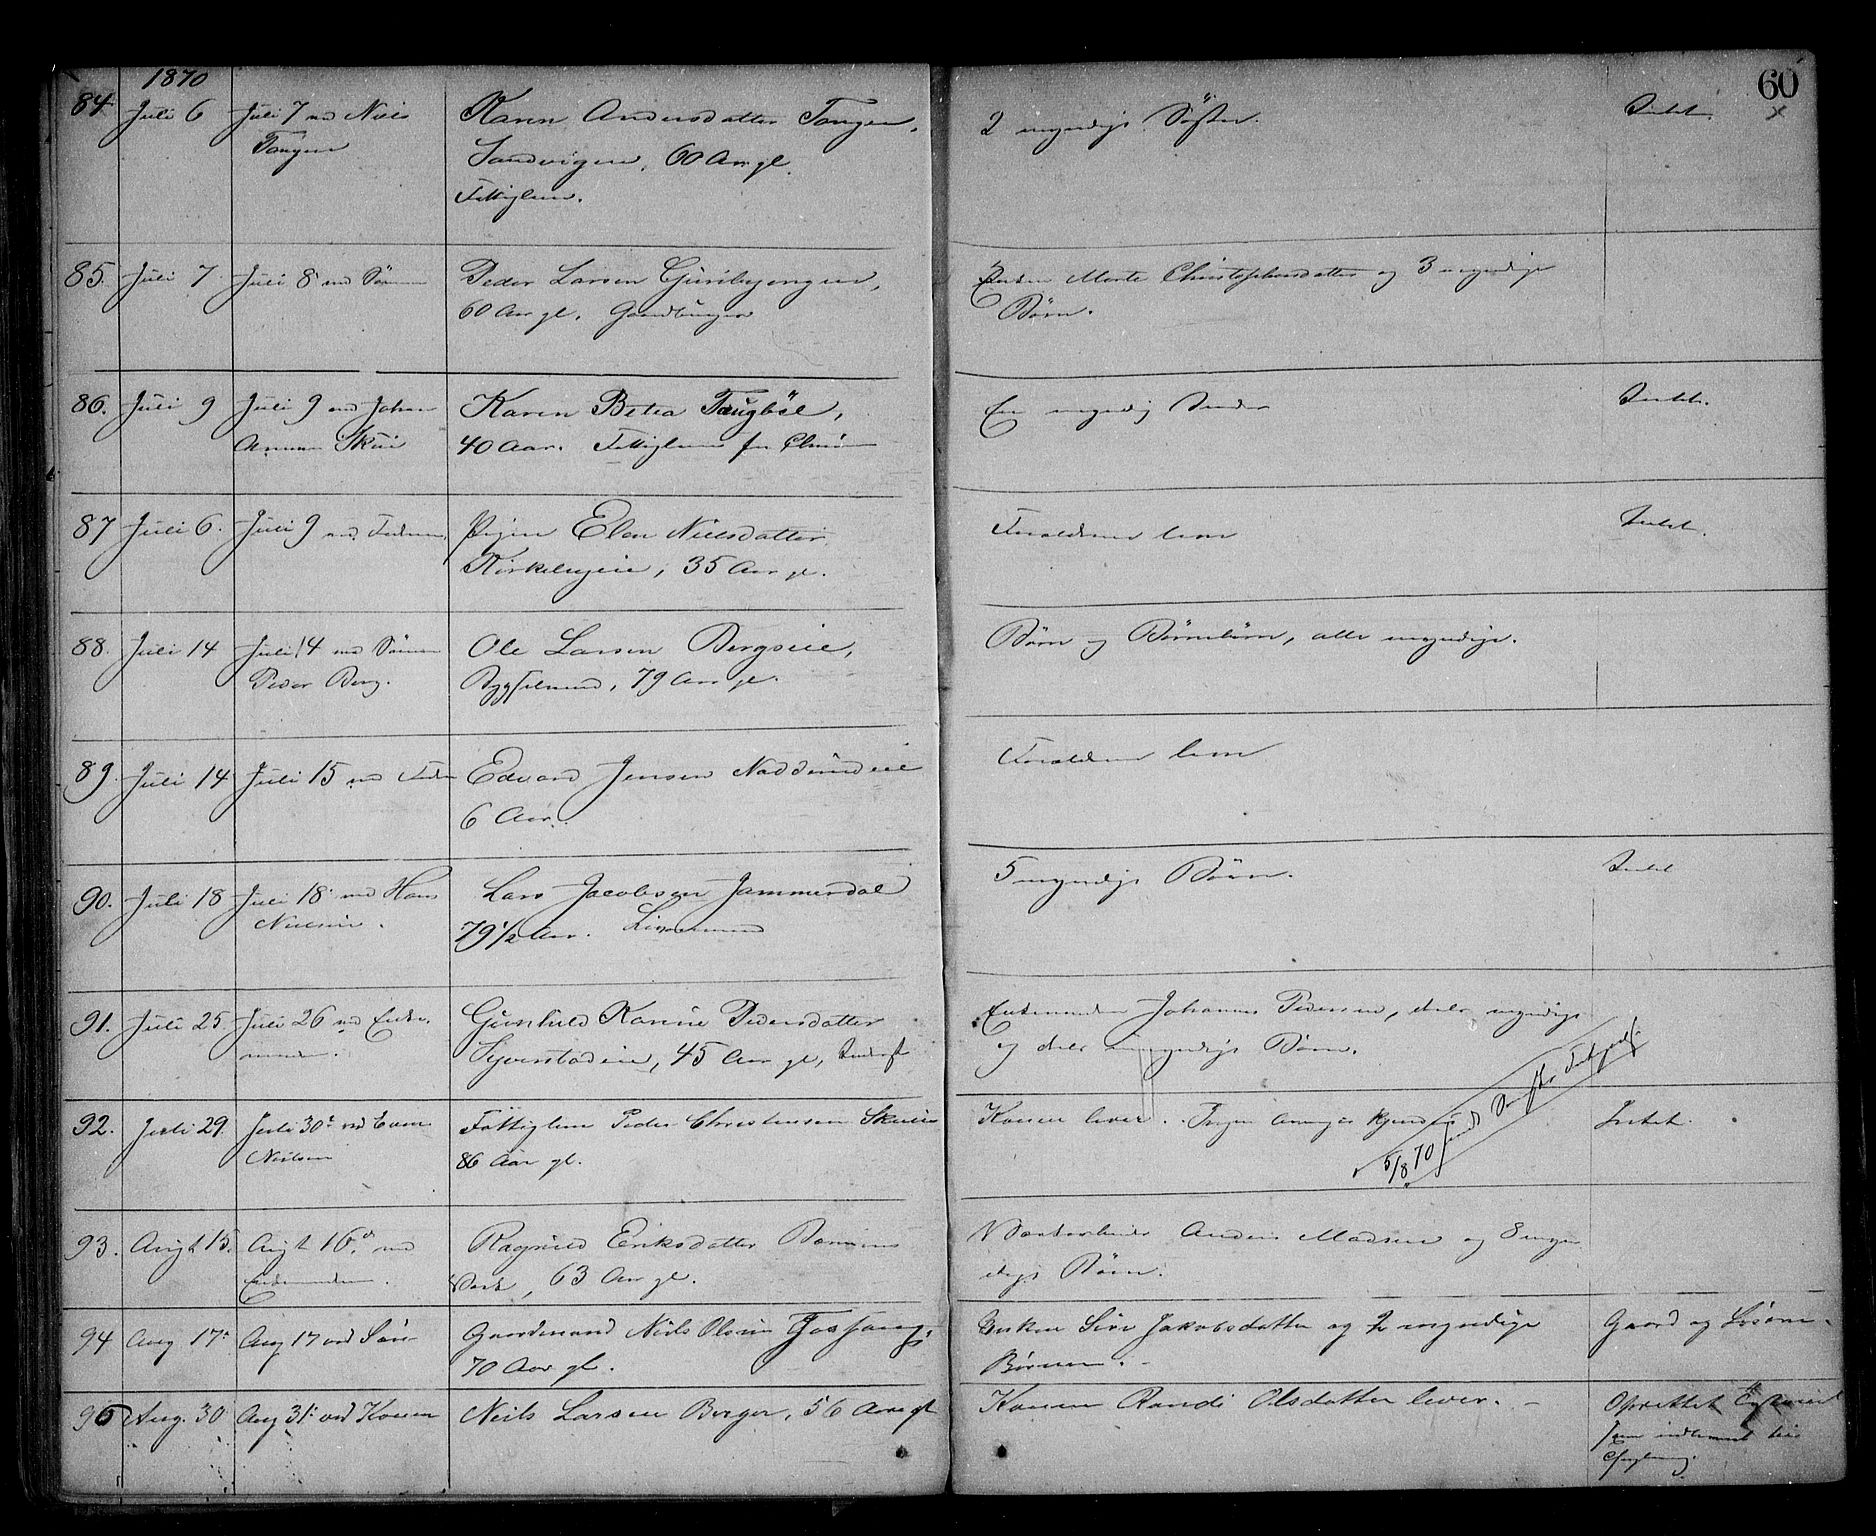 1870
60
84 Juli 6 Juli 7 ved Niels Karen Andersdatter Tangen, 2 myndige Søstre. Intet.
Tangen Sandvigen, 60 Aar gl.
Fattiglem.
85. Juli 7 Juli 8 ved Sønnen Peder Larsen Gjesibyengen, Enken Marte Christophersdatter og 3 myndige
60 Aar gl. Gaardbruger Børn.
86. Juli 9 Juli 9 ved Johan Karen Betea Taugbøl, En myndig Intet.
Skui 40 Aar. Fattiglem fra
87 Juli 6. Juli 9 ved Faderen, Pigen Elen Nielsdatter Forældrene leve Intet.
Kirkerudeie, 35 Aar gl.
88. Juli 14 Juli 14 ved Sønnen Ole Larsen Bergseie, Børn og Børnebørn, alle myndige.
Peder Berg. Bygselmand, 79 Aar gl.
89. Juli 14 Juli 15 ved Faderen Edvard Jensen Nadderudeie Forældrene leve
6 Aar.
90. Juli 18 Juli 18 ved Hans Lars Jacobsen Jammerdal 5 myndige Børn. Intet
Nielsen. 79 1/2 Aar.
91. Juli 25. Juli 26 ved Enke- Gunhild Karine Pedersdatter Enkemanden Johannes Pedersen, dels myndige
manden. Syverstadeie, 45 Aar gl, og dels umyndige Børn.
92. Juli 29. Juli 30te ved Even Fattiglem Peder Christensen Skuieie Konen lever. Ingen Arvinger kjendes Intet.
Neilsen 86 Aar gl. 5/8 70
93. Augt 15. Augt 16 ved Ragnild Eriksdatter Bærums Værksarbeider Anders Madsen og 8 myn
Enkemanden. Værk, 63 Aar gl. dige Børn.
94 Aug 17. Aug 17 ved Søn Gaardmand Niels Olsen Jossang, Enken Siri Jakobsdatter og 2 myndige Gaard og Løsøre.
70 Aar gl. Børnene.
95 Aug. 30 Aug 31 ved Konen Neils Larsen Berger, 56 Aar gl Konen Randi Olsdatter lever. Oprettet